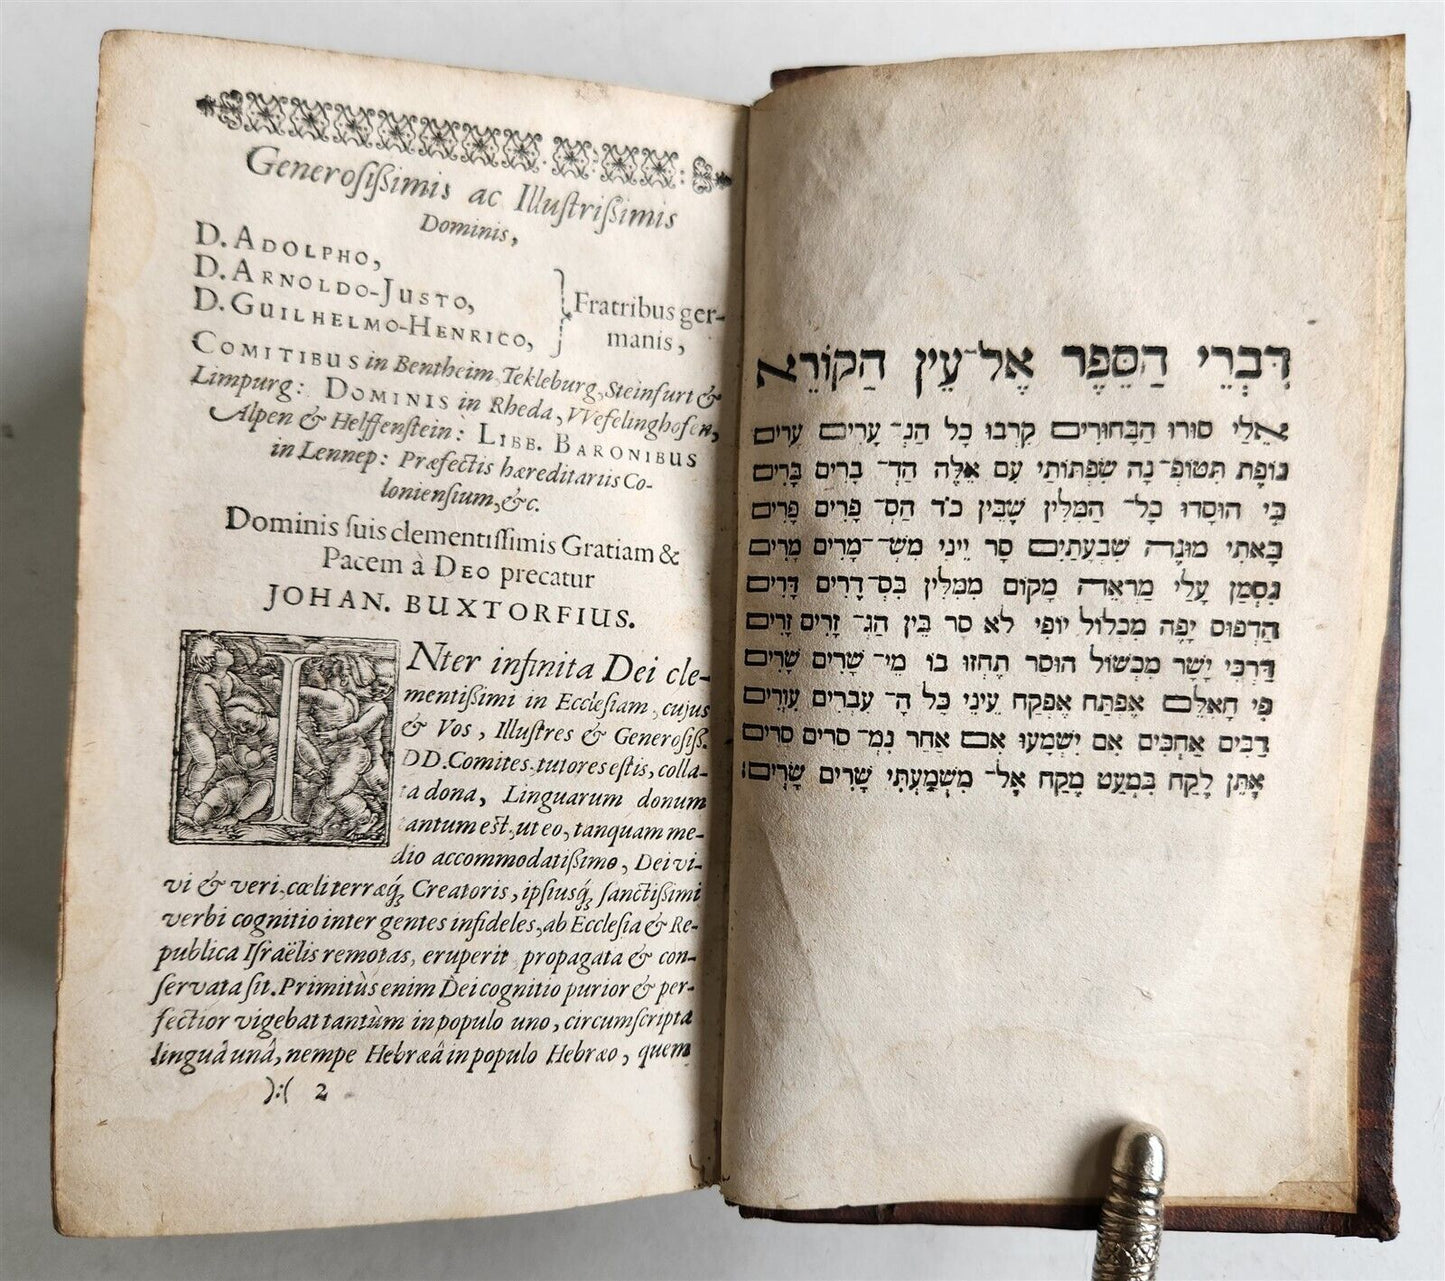 Generoſiſsimis ac Illuſtriſsimis
Dominis,
D. ADOLPHO,
D. ARNOLDO-JUSTO,
D. GUILHELMO-HENRICO,
Fratribus ger-
manis,
COMITIBUS in Bentheim, Tekleburg, Steinfurt &
Limpurg: DOMINIS in Rheda, VVefelinghofen,
Alpen & Helffenſtein: LIBB. BARONIBUS
in Lennep: Præfectis hæreditariis Co-
lonienſium, &c.
Dominis ſuis clementiſſimis Gratiam &
Pacem à DEO precatur
JOHAN. BUXTORFIUS.
INter infinita Dei cle-
mentiſsimi in Eccleſiam, cujus
& Vos, Illuſtres & Generoſiſs.
DD. Comites, tutores eſtis, colla-
ta dona, Linguarum donum
tantum eſt, ut eo, tanquam me-
dio accommodatiſsimo, Dei vi-
vi & veri, cœli terræq́; Creatoris, ipſiusq́; ſanctiſsimi
verbi cognitio inter gentes infideles, ab Eccleſia & Re-
publica Iſraëlis remotas, eruperit propagata & con-
ſervata ſit. Primitùs enim Dei cognitio purior & per-
fectior vigebat tantùm in populo uno, circumſcripta
linguâ unâ, nempe Hebræâ in populo Hebræo, quem
):( 2
דִּבְרֵי הַסֵּפֶר אֶל־עֵין הַקּוֹרֵא
אֵלַי סוּרוּ הַבַּחוּרִים קִרְבוּ כָל הַנְ־ עָרִים עֵרִים
נוֹפֶת תִּטּוֹפְ־נָה שִׂפְתוֹתַי עִם אֵלֶּה הַדְ־ בָרִים בָּרִים
כִּי הוּסְדוּ כָל־ הַמִּלִּין שֶׁבֵּין כֹּד הַסְ־ פָרִים פָּרִים
בָּאתִי מוּגָה שִׁבְעָתַיִם סָר יֵינִי מִשְׁ־מָרִים מָרִים
נִסְמַן עָלַי מַרְאֵה מָקוֹם מִמִּלִּין בִּסְ־דָרִים דָּרִים
הַדְּפוּס יָפֶה מִכְלוֹל יוֹפִי לֹא סַר בֵּין הַגְ־ זָרִים זָרִים
דַּרְכִּי יָשָׁר מִכְשׁוֹל הוּסַר תֶּחֱזוּ בוֹ מֵי־ שָׁרִים שָׁרִים
פִּי חָאלֵם אֶפְתַּח אֶפְקַח עֵינֵי כָּל הָ־ עִבְרִים עִוְרִים
רַבִּים אַחְכִּים אִם יִשְׁמְעוּ אִם אַחַר נִמְ־ סָרִים סָרִים
אֶתֵּן לֶקַח בִּמְעַט מֶקַח אֶל־ מִשְׁמַעְתִּי שָׂרִים שָׂרִים: